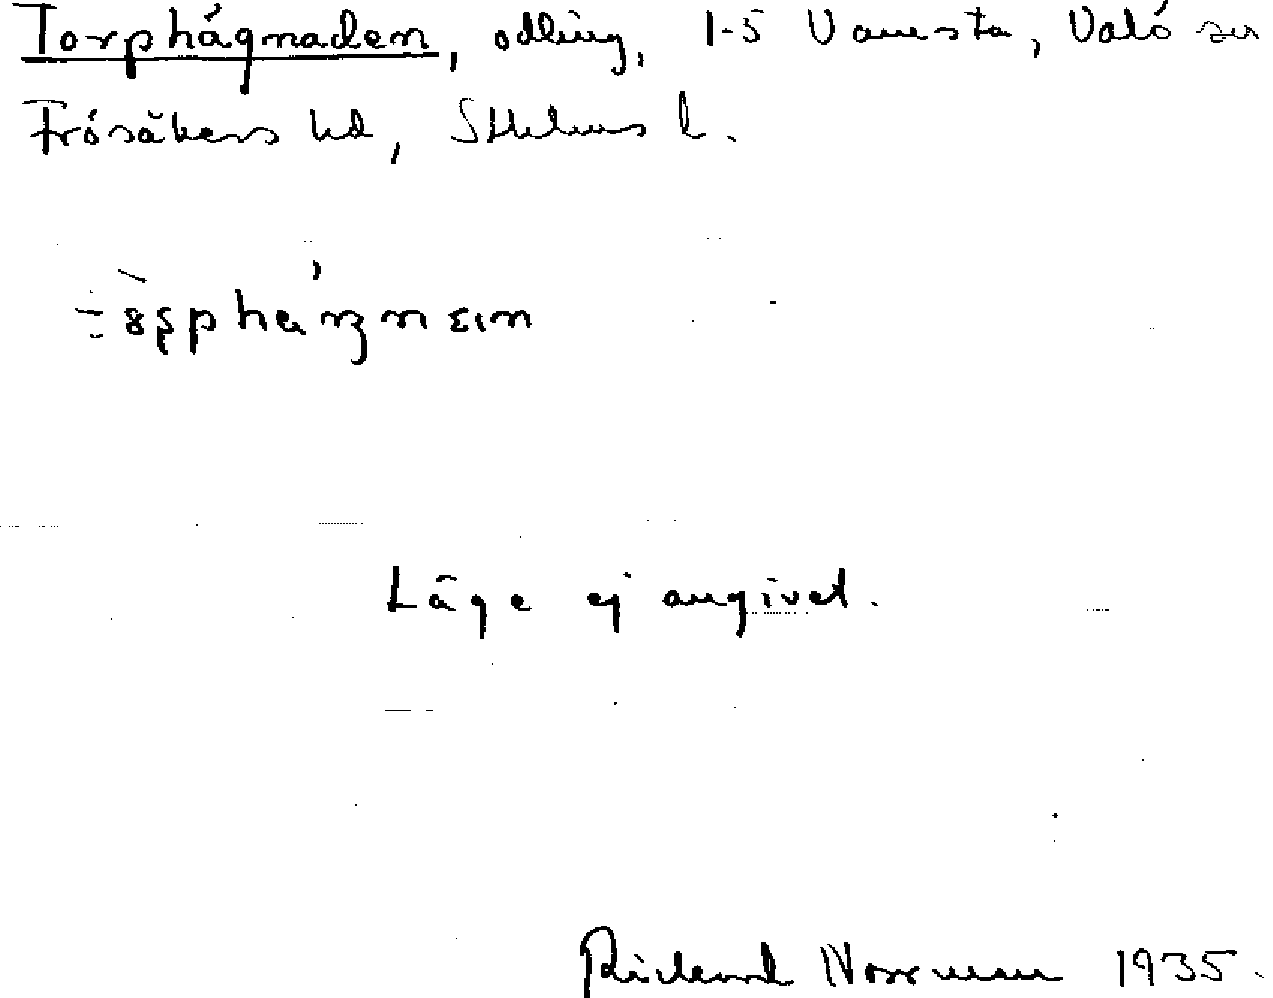 Torphágmaden, odling, 1-5 Vamsta, Valö sn
Frösåkers hd, Sthlms l.
Läge ej angivet.
Rickard Norrman 1935.